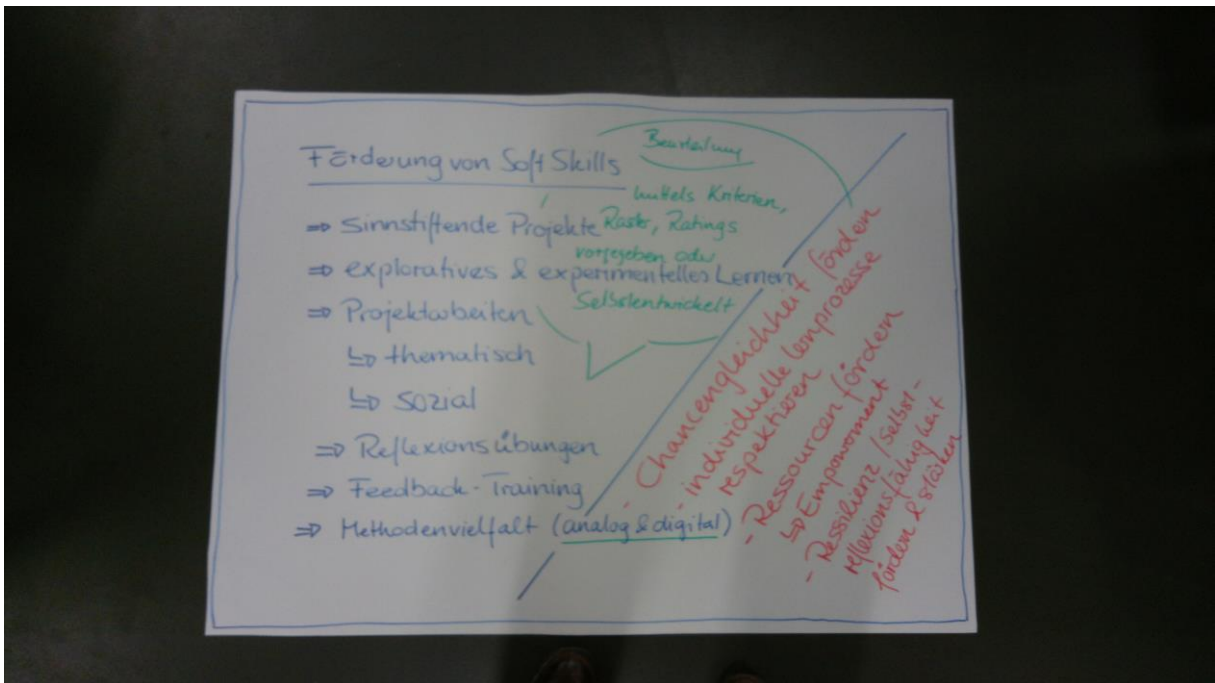 Förderung von Soft Skills
⇒ Sinnstiftende Projekte
⇒ exploratives & experimentelles Lernen
⇒ Projektarbeiten
↳ thematisch
↳ sozial
⇒ Reflexionsübungen
⇒ Feedback-Training
⇒ Methodenvielfalt (analog & digital)
Beurteilung
mittels Kriterien,
Raster, Ratings
vorgegeben oder
Selbstentwickelt
- Chancengleichheit fördern
- individuelle Lernprozesse
respektieren
- Ressourcen fördern
↳ Empowerment
- Ressilienz / Selbst-
reflexionsfähigkeit
fördern & stärken